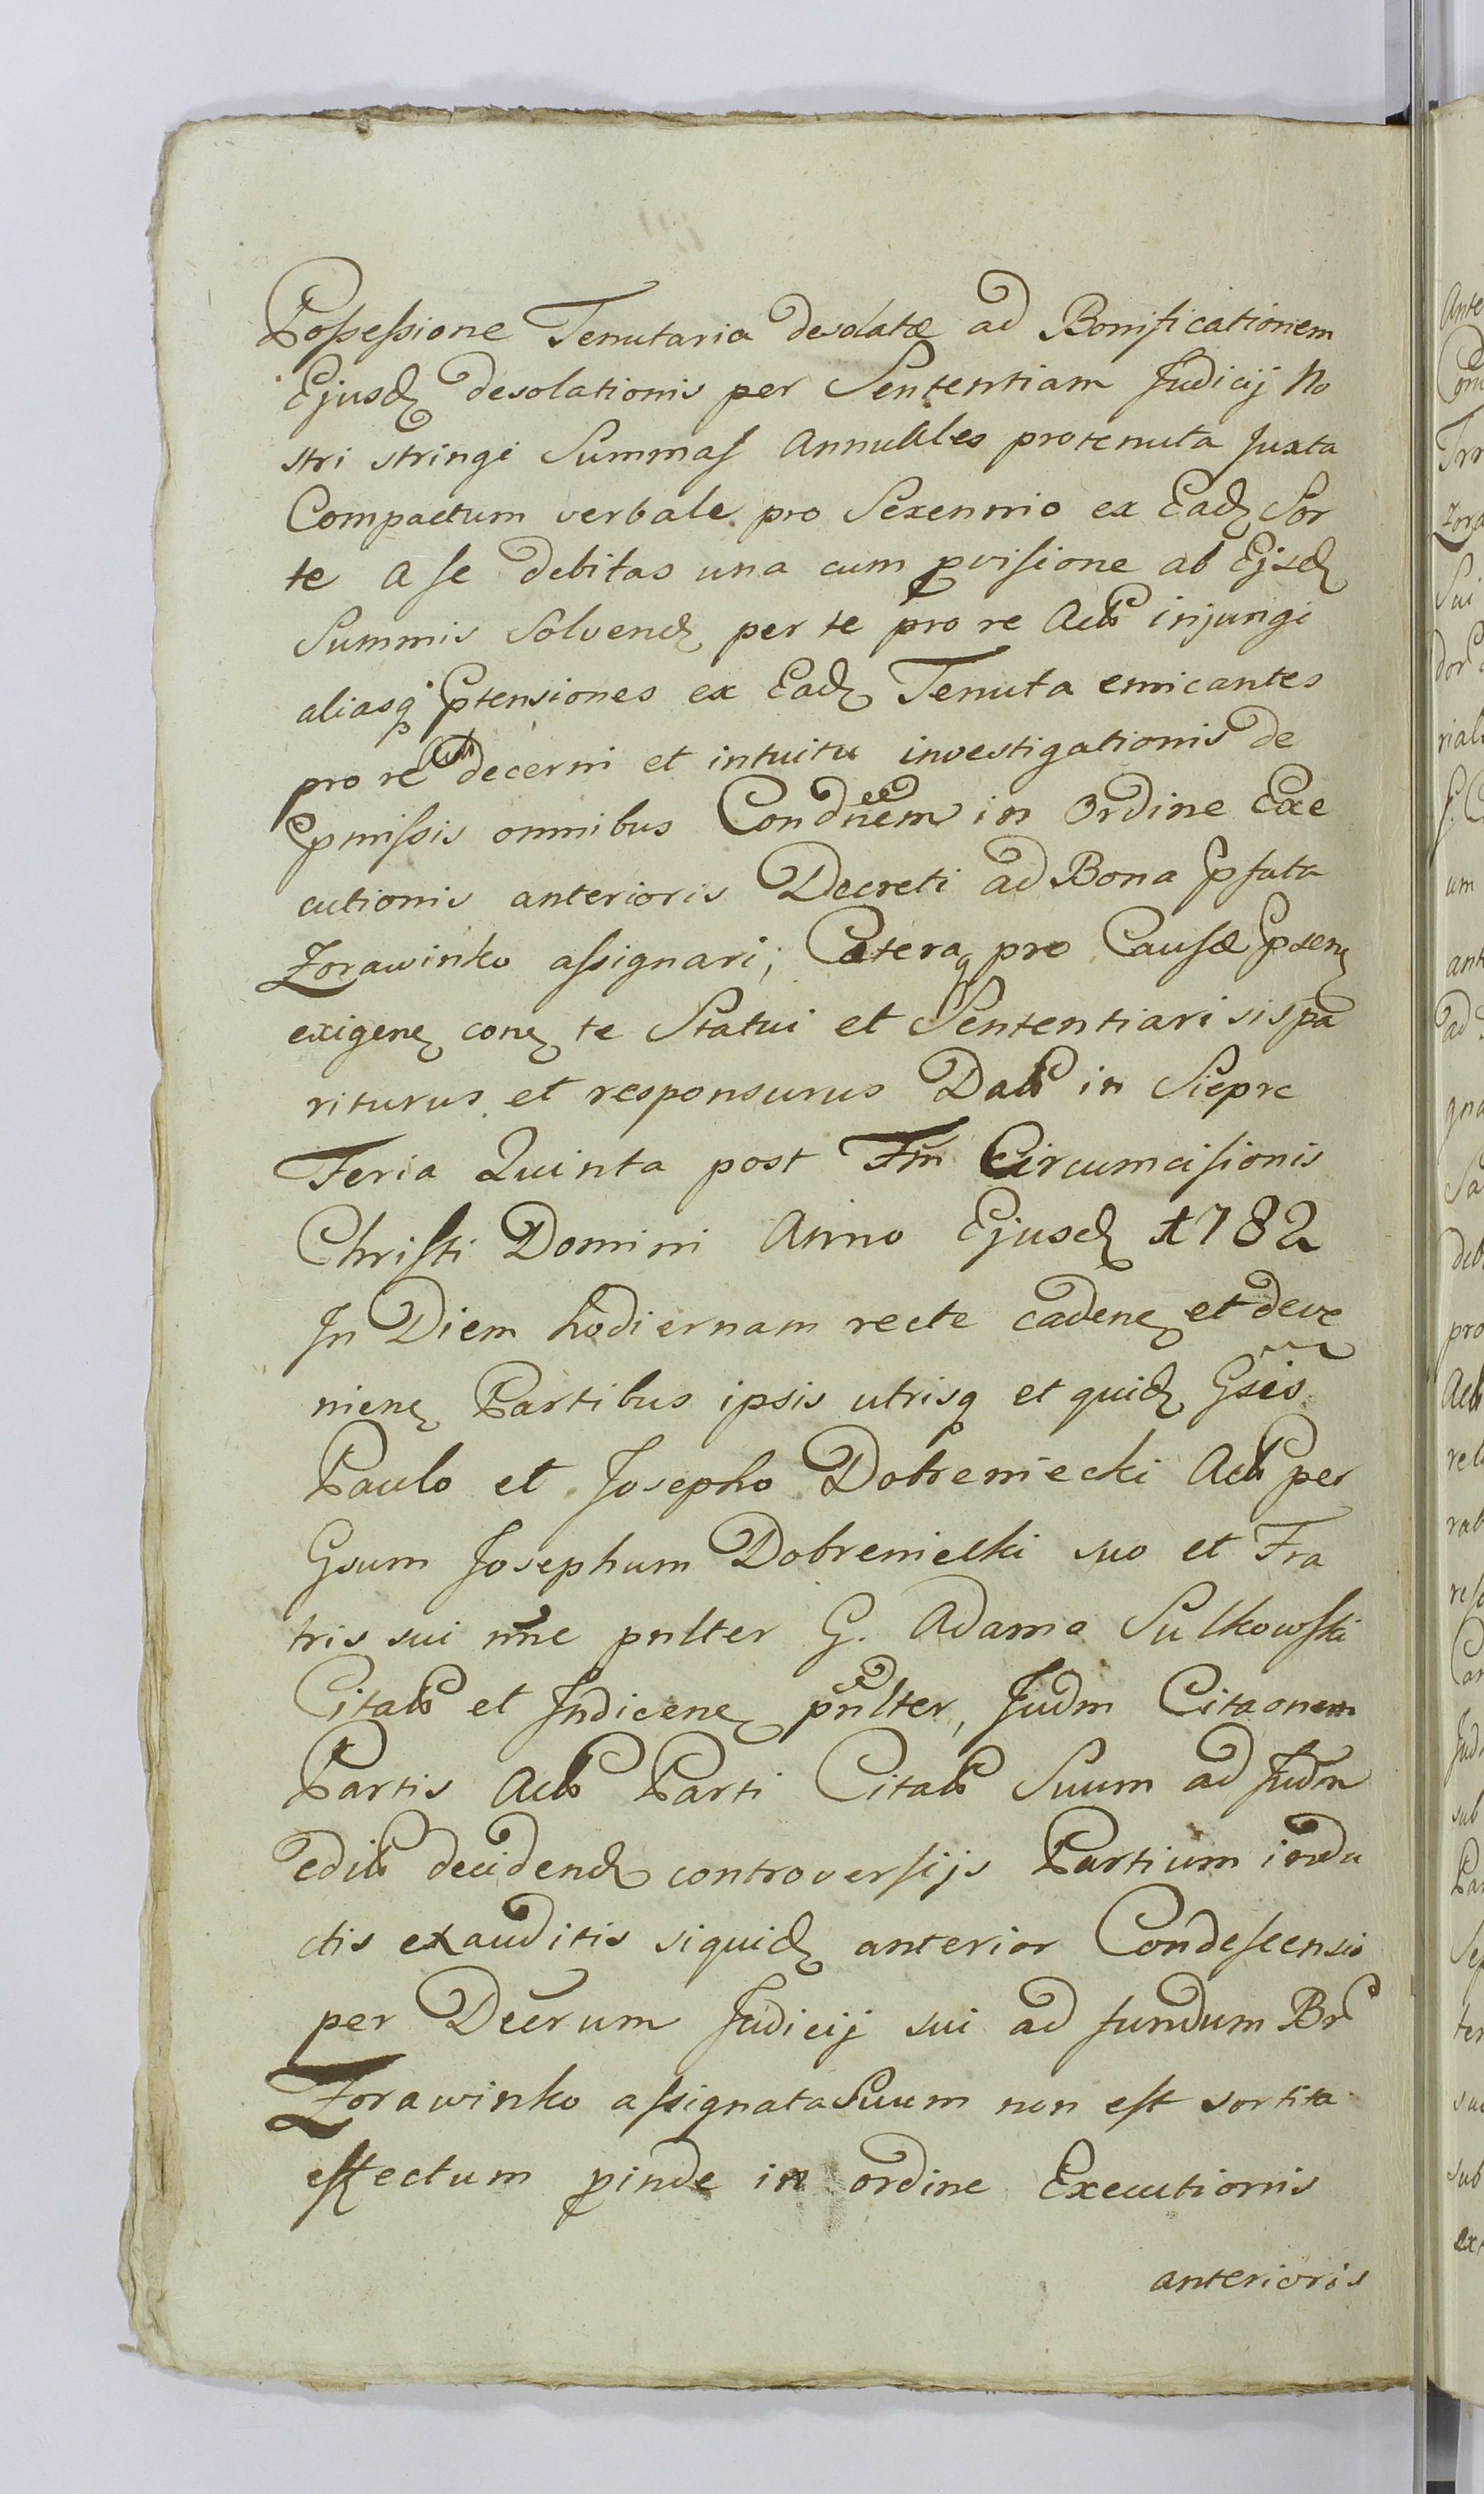 Possessione Tenutaria desolatæ ad Bonificationem
Ejusd desolationis per Sententiam Judicij No
stri stringi Summas Annuales pro tenuta Juxta
Compactum verbale pro Sexennio ex Ead Sor
te a se debitas una cum pvisione ab Ejsd
Summis Solvend per te pro re Actb injungi
aliasq Ptensiones ex Ead Tenuta emicantes
pro re Actb decerni et intuitu investigationis de
Pmissis omnibus Condnem in Ordine Exe
cutionis anterioris Decreti ad Bona Pfata
Zorawinko assignari, Cæteraq pro Causæ Psen
exigen con te Statui et Sententiari sis pa
riturus et responsurus Datb in Siepre
Feria Quinta post Fm Circumcisionis
Christi Domini Anno Ejusd 1782
In Diem hodiernam recte caden et deve
nien Partibus ipsis utrisq et quid Gsis
Paulo et Josepho Dobreniecki Actb per
Gsum Josephum Dobreniecki suo et Fra
tris sui nne pnlter G. Adamo Sulkowski
Citatb et Indicen pnlter, Judm Citaonem
Partis Actb Parti Citatb Suum ad Judm
editb decidend controversijs Partium indu
ctis exauditis siquid anterior Condescensio
per Decrum Judicij sui ad fundum Br
Zorawinko assignata Suum non est sortita
effectum pinde in ordine Executionis
anterioris